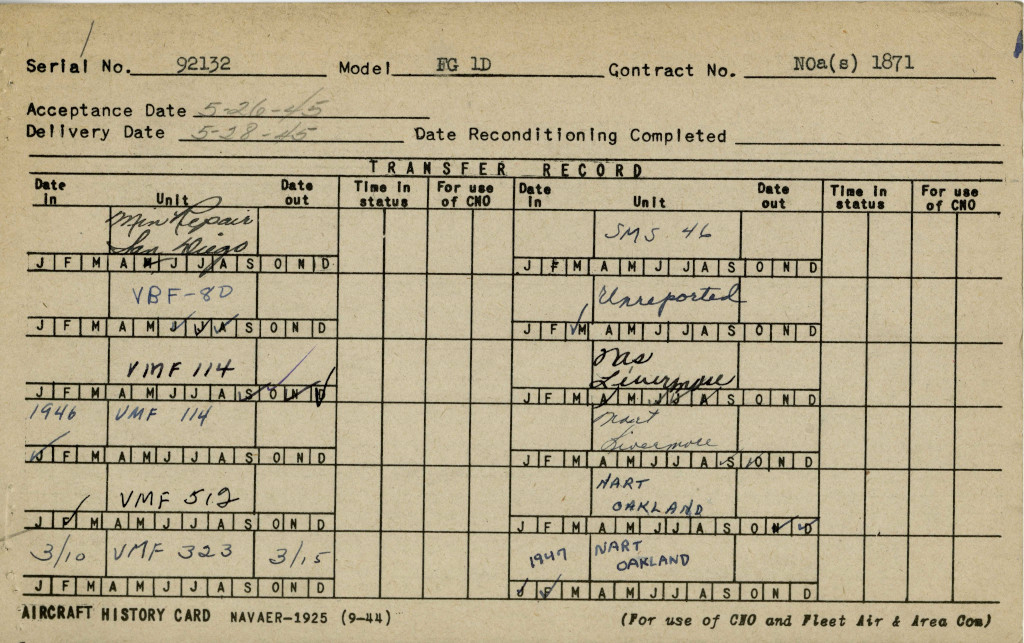 Serial No. 92132 Model FG 1D Contract No. NOa(s) 1871
Acceptance Date 5-26-45
Delivery Date 5-28-45 Date Reconditioning Completed
TRANSFER RECORD
Date in Unit Date out Time in status For use of CNO Date in Unit Date out Time in status For use of CNO
Min Repair
San Diego
J F M A M J J A S O N D
VBF-8D
J F M A M J J A S O N D
VMF 114
J F M A M J J A S O N D
1946 VMF 114
J F M A M J J A S O N D
VMF 512
J F M A M J J A S O N D
3/10 VMF 323 3/15
J F M A M J J A S O N D
SMS 46
J F M A M J J A S O N D
Unreported
J F M A M J J A S O N D
Nas
Livermore
J F M A M J J A S O N D
Nart
Livermore
J F M A M J J A S O N D
NART
OAKLAND
J F M A M J J A S O N D
1947 NART
OAKLAND
J F M A M J J A S O N D
AIRCRAFT HISTORY CARD NAVAER-1925 (9-44) (For use of CNO and Fleet Air & Area Com)